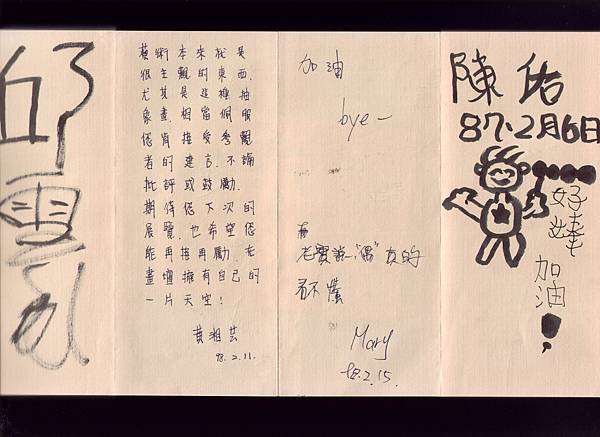 邱
藝術本來就是
很主觀的東西,
尤其是這種抽
象畫.相當佩服
您肯接受參觀
者的建言,不論
批評或鼓勵.
期待您下次的
展覽,也希望您
能再接再勵,在
畫壇擁有自己的
一片天空!
黃湘芸
98.2.11.
加油
bye—
老實說—"偶"真的
看不懂
Mary
98.2.15.
陳佑
87.2月6日
加油!